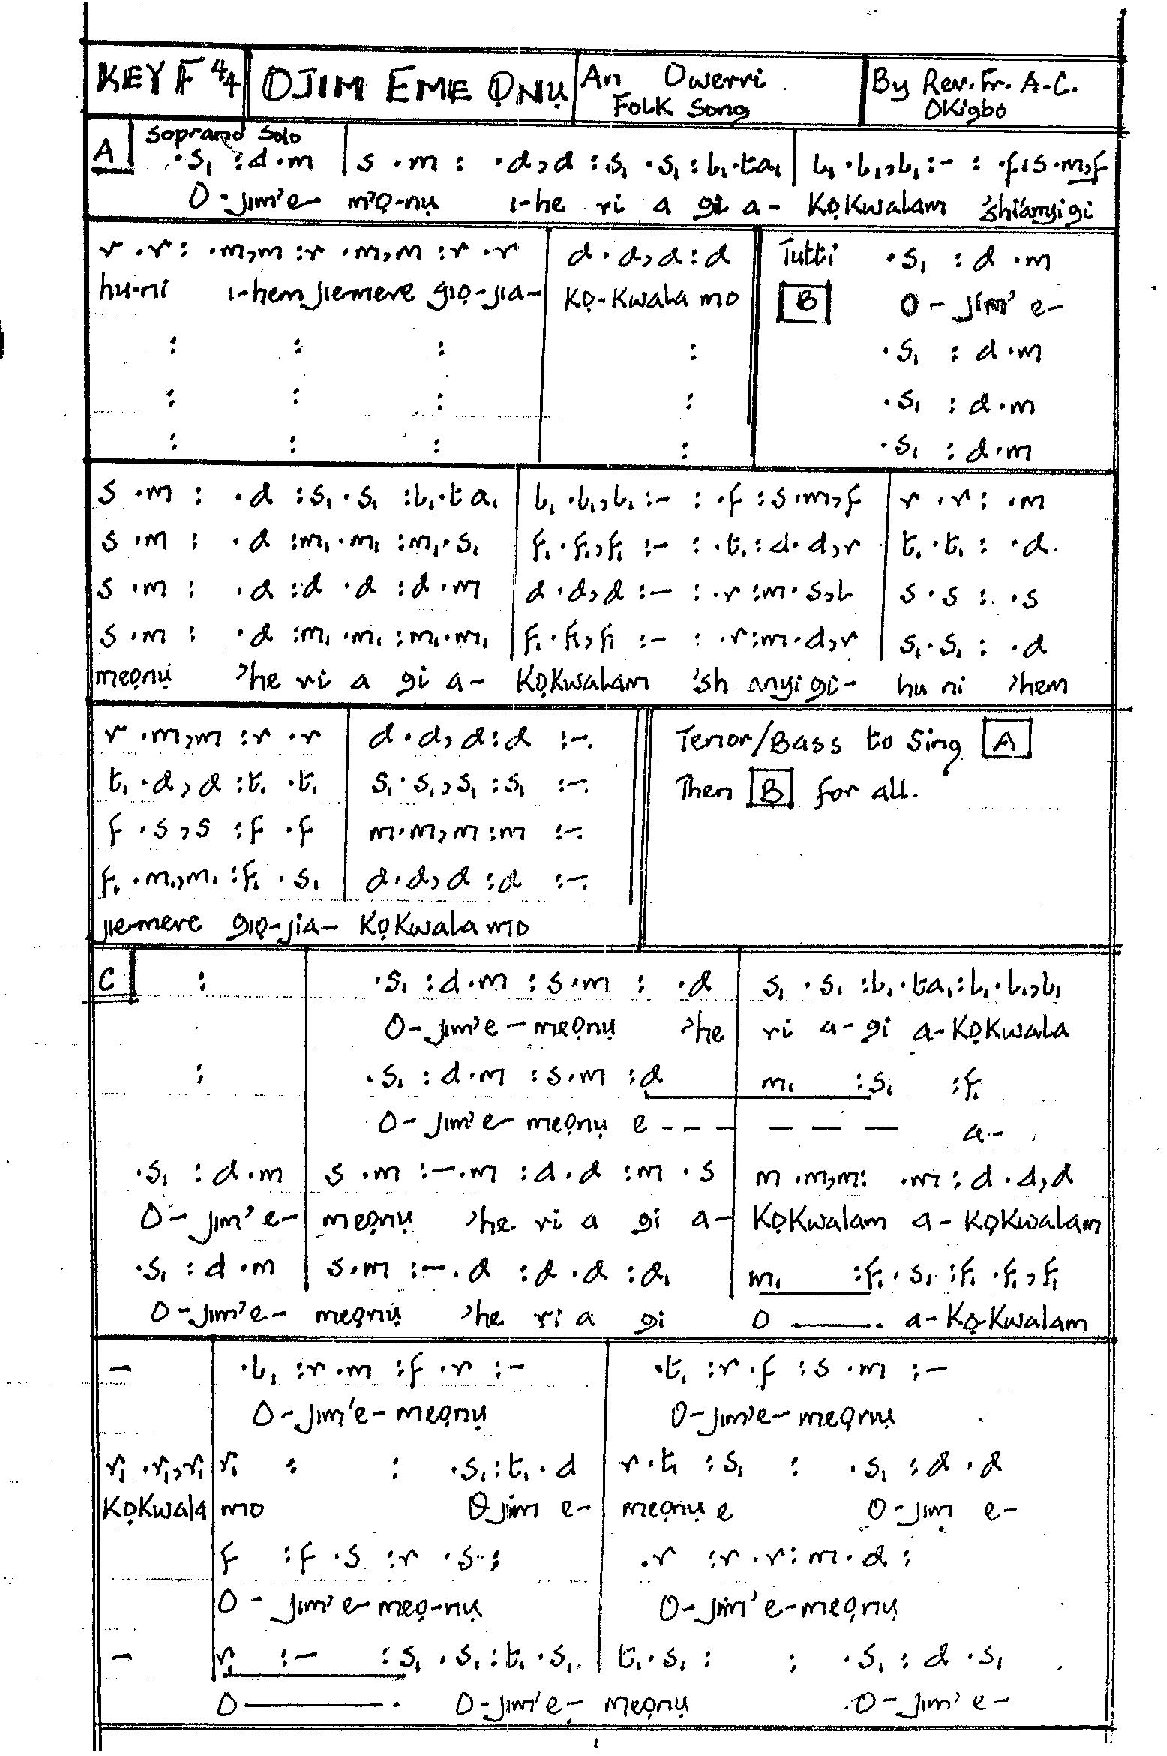 KEY F 4/4 | OJIM EME ỌNỤ | An Owerri Folk Song | By Rev. Fr. A-C. Okigbo
A | Soprano Solo
.s₁ :d .m | s .m : .d,d :s₁ .s₁ :l₁.ta₁ | l₁ .l₁,l₁ :- : .f :s.m,f
O-jim'e- m'ọ-nụ ı-he ri a gi a- Kọkwalam 'shi'anyigi
r .r : .m,m :r .m,m :r .r | d .d,d :d | Tutti .s₁ :d .m
hu-ni ı-hem jiemere gịọ-jia- Kọ-Kwala mo | B | O- jim' e-
: : : | : | .s₁ :d .m
: : : | : | .s₁ :d .m
: : : | : | .s₁ :d .m
s .m : .d :s₁ .s₁ :l₁.ta₁ | l₁ .l₁,l₁ :- : .f :s.m,f | r .r : .m
s .m : .d :m₁ .m₁ :m₁.s₁ | f₁ .f₁,f₁ :- : .t₁ :d.d,r | t₁ .t₁ : .d.
s .m : .d :d .d :d .m | d .d,d :- : .r :m.s,l | s .s : .s
s .m : .d :m₁ .m₁ :m₁.m₁ | f₁ .f₁,f₁ :- : .r :m.d,r | s₁ .s₁ : .d
meọnụ 'he ri a gi a- KọKwalam 'sh anyigi- hu ni 'hem
r .m,m :r .r | d .d,d :d :-. | Tenor/Bass to Sing A
t₁ .d,d :t₁ .t₁ | s₁ .s₁,s₁ :s₁ :-. | Then B for all.
f .s,s :f .f | m.m,m :m :-.
f₁ .m₁,m₁ :f₁ .s₁ | d.d,d :d :-.
jiemere gịọ-jia- KọKwala mo
C | : | .s₁ :d.m :s.m : .d | s₁ .s₁ :l₁.ta₁ :l₁.l₁,l₁
O-jim'e-meọnụ 'he ri a-gi a-KọKwala
: | .s₁ :d.m :s.m :d | m₁ :s₁ :f₁
O-jim'e-meọnụ e - - - - - - a-
.s₁ :d .m | s .m :-.m :d.d :m .s | m .m,m : .m :d .d,d
O-jim' e- meọnụ 'he ri a gi a- KọKwalam a-KọKwalam
.s₁ :d .m | s.m :-.d :d .d :d₁ | m₁ :f₁ .s₁ :f₁ .f₁,f₁
O-jim'e- meọnụ 'he ri a gi O ——. a-Kọ-Kwalam
- | .l₁ :r .m :f .r :- | .t₁ :r .f :s .m :-
O-jim'e-meọnụ O-jim'e-meọnụ
r₁ .r₁,r₁ | r₁ : : .s₁ :t₁ .d | r .t₁ :s₁ : .s₁ :d .d
KọKwala mo Ojim e- meọnụ e O-jim e-
f :f .s :r .s :| .r :r .r :m .d :
O-jim'e-meọ-nụ O-jim'e-meọnụ
- | r₁ :- :s₁ .s₁ :t₁ .s₁ | t₁ .s₁ : : .s₁ :d .s₁
O ——. O-jim'e- meọnụ O-jim'e-